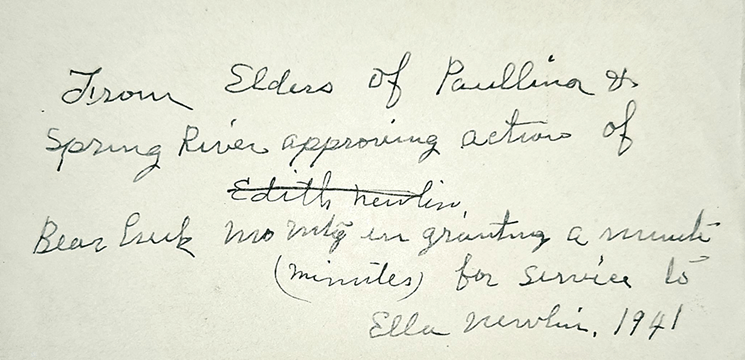 From Elders of Paullina &
Spring River approving action of
Edith Newlin
Bear Creek Mo Mtg in granting a minute
(minutes) for service to
Ella Newlin, 1941